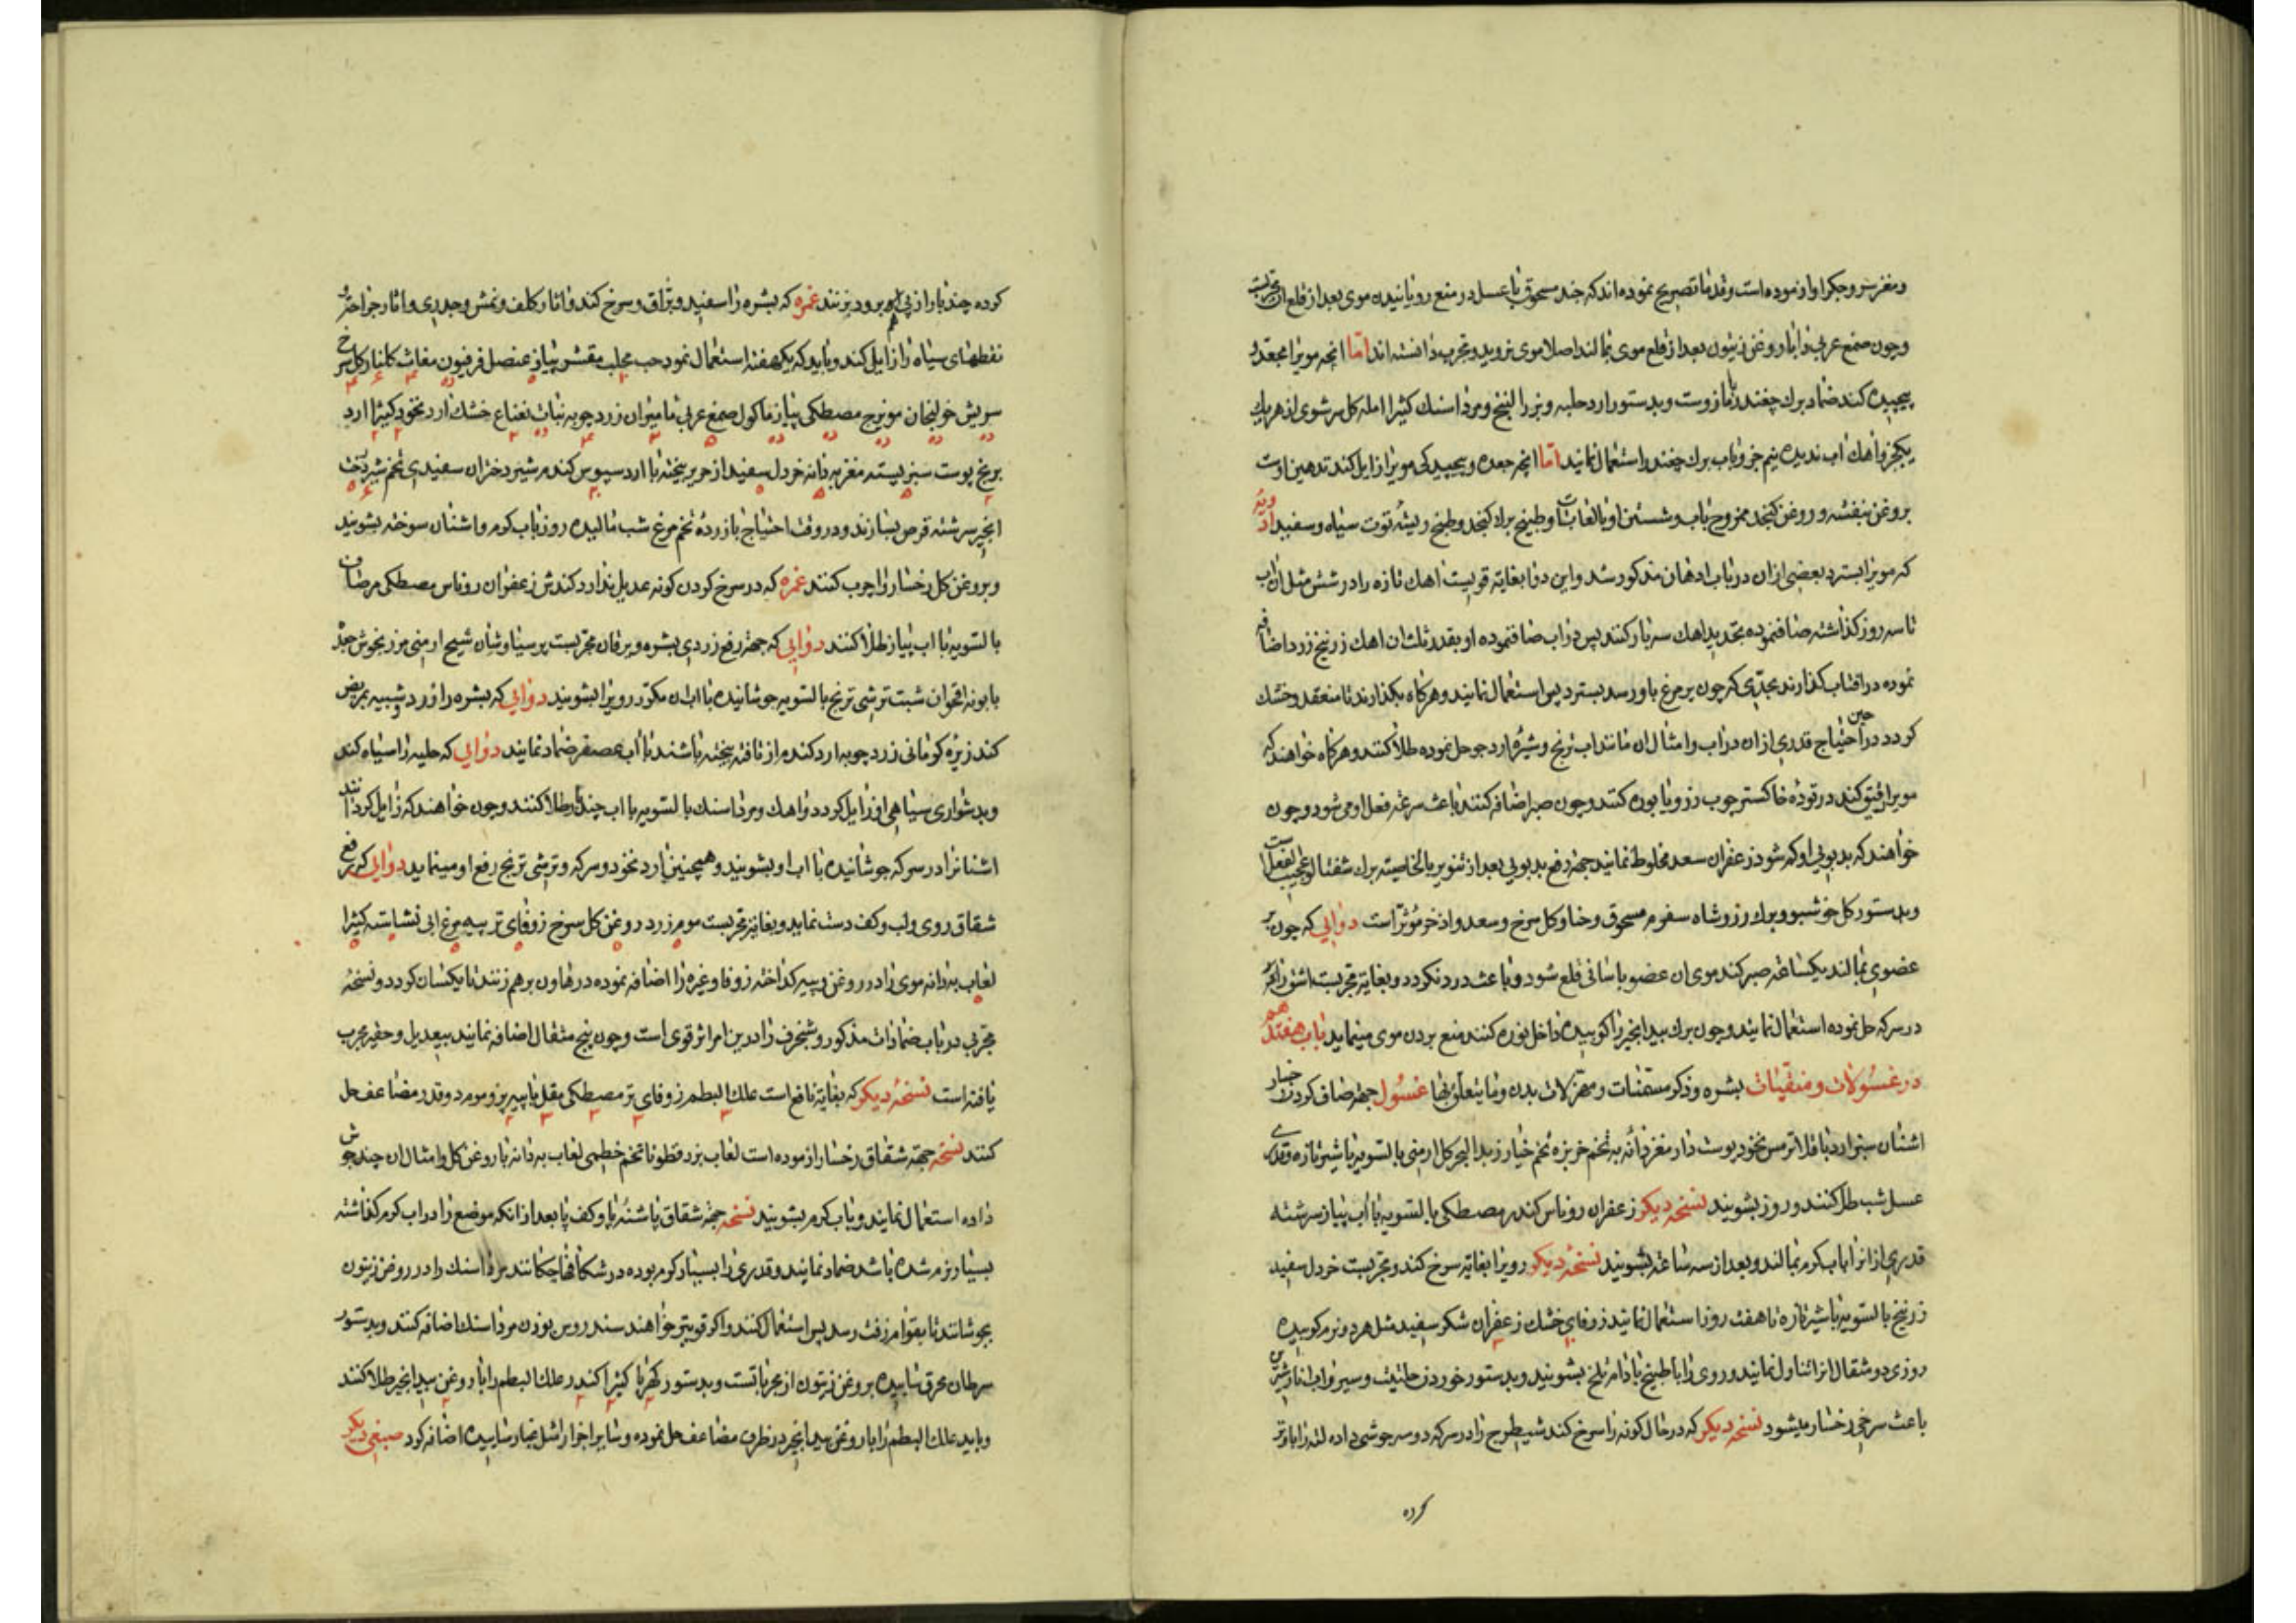 و مغز سر و جکر او ازموده است و قدما تصریح نموده اند که جند مسحوق با عسل در منع رویانیدن موی بعد از قلع ان مجربست
و چون صمغ عربی را با روغن زیتون بعد از قلع موی بمالند اصلا موی نروید و مجرب دانسته اند اما انچه مویرا مجعد و
پیچیده کند ضماد برك چغندر با مازوست و بدستور ارد حلبه و بزر البنج و مرداسنك کثیرا امله کل سرشوی از هر یك
یکجزو اهك اب ندیده نیم جزو باب برك چغندر استعمال نمایند اما انچه جعده و پیچیدکی مویرا زایل کند تدهین اوست
بروغن بنفشه و روغن کنجد ممزوج باب و شستن او بالعابات و طبیخ برك کنجد و طبخ ریشه توت سیاه و سفید ادویه
که مویرا بسترد بعضی ازان در باب ادهان مذکور شد و این دوا بغایة قویست اهك تازه را در شش مثل ان اب
تا سه روز کذاشته صاف نموده بتجدید اهك سه بار کنند پس دراب صاف نموده او بقدر ثلث ان اهك زرنیخ زرد اضافه
نموده در افتاب کذارند بحدی که چون پر مرغ باو رسد بسترد پس استعمال نمایند و هرکاه بکذارند تا منعقد و خشك
کردد در حین احتیاج قدری ازان در اب و امثال ان مانند اب ترنج و شیره ارد جو حل نموده طلا کنند و هرکاه خواهند که
مویرا رقیق کند در توده خاکستر چوب رز و یا بوره کنند و چون صبر اضافه کنند باعث سرعة فعل او می شود و چون
خواهند که بدبویی او کم شود زعفران سعد مخلوط نمایند جهة رفع بدبویی بعد از تنویر بالخاصیته برك شفتالو عجیب الفعل است
و بدستور کل خوشبو و برك رز و شاه سفرم مسحوق و حنا و کل سرخ و سعد و اذخر مؤثر است دوایی که چون بر
عضوی بمالند یکساعة صبر کنند موی ان عضو باسانی قلع شود و باعث درد نکردد و بغایة مجربست اشق را که
در سرکه حل نموده استعمال نمایند و چون برك بیدانجیر را کوبیده داخل نوره کنند منع بردن موی مینماید باب هفتدهم
در غسولات و منقیات بشره و ذکر مسمنات و مهزلات بدن و ما یتعلق بها غسول جهة صاف کردن رخسار
اشنان سبز ارد باقلا ترمس نخود پوست دار مغز دانه به تخم خربزه تخم خیار زبد البحر کل ارمنی بالتسویه با شیر تازه و قدری
عسل شب طلا کنند و روز بشویند نسخه دیکر زعفران روناس کندر مصطکی بالتسویه با اب پیاز سرشته
قدری ازانرا باب کرم بمالند و بعد از سه ساعة بشویند نسخه دیکر رویرا بغایة سرخ کند و مجربست خردل سفید
زرنیخ بالتسویه با شیر تازه تا هفت روز استعمال نمایند زوفای خشك زعفران شکر سفید مثل هر دو نرم کوبیده
روزی دو مثقال ازان تناول نمایند و روی را با طبیخ بادام تلخ بشویند و بدستور خوردن حلتیت و سیر و اب انار شیرین
باعث سرخی رخسار میشود نسخه دیکر که در حال کونه را سرخ کند شیطرج را در سرکه دو سه جوشی داده لته را باو تر
کرده
کرده چند بار از پی هم برو بزنند غمره که بشره را سفید و براق و سرخ کند و اثار کلف و نمش و جدری و اثار جراحة و
نقطهای سیاه را زایل کند و باید که یکهفته استعمال نمود حب محلب مقشر پیاز عنصل فرفیون مغاث کلنار کل سرخ
سریش خولنجان مویزج مصطکی پیاز ماکول صمغ عربی مامیران زردچوبه نبات نعناع خشك ارد نخود کثیرا ارد
برنج پوست سبز پسته مغز به دانه خردل سفید از حریر بیخته با ارد سبوس کندم شیر دختران سفیدی تخم شیر درخت
انجیر سرشته قرص بسازند و در وقت احتیاج با زرده تخم مرغ شب مالیده روز باب کرم و اشنان سوخته بشویند
و بروغن کل رخسار را چرب کنند غمره که در سرخ کردن کونه عدیل ندارد کندش زعفران روناس مصطکی مر صاف
بالتسویه با اب پیاز طلا کنند دوایی که جهة رفع زردی بشره و یرقان مجربست پرسیاوشان شیح ارمنی مرزنجوش جعده
بابونه اقحوان شبت ترشی ترنج بالتسویه جوشانیده با اب ان مکرر رویرا بشویند دوایی که بشره را زرد و شبیه بمریض
کند زیره کرمانی زردچوبه ارد کندم از تافته پخته باشند با اب عصفر ضماد نمایند دوایی که حلیه را سیاه کند
و بدشواری سیاهی او زایل کردد اهك و مرداسنك بالتسویه با اب چند بار طلا کنند و چون خواهند که زایل کردانند
اشنانرا در سرکه جوشانیده با اب او بشویند و همچنین ارد نخود و سرکه و ترشی ترنج رفع او مینماید دوایی که رفع
شقاق روی و لب و کف دست نماید و بغایة مجربست موم زرد روغن کل سرخ زوفای تر پیه مرغابی نشاسته کثیرا
لعاب به دانه موی را در روغن و پیه کداخته زوفا و غیره را اضافه نموده در هاون برهم زنند تا یکسان کردد و نسخه
مجربی در باب ضمادات مذکور و شنجرف را درین امر اثر قوی است و چون پنج مثقال اضافه نمایند بیعدیل و حقیر مجرب
یافته است نسخه دیکر که بغایة نافع است علك البطم زوفای تر مصطکی مقل با پیه بز و موم در قدر مضاعف حل
کنند نسخه جهة شقاق رخسار ازموده است لعاب بزرقطونا تخم خطمی لعاب به دانه با روغن کل و امثال ان چند جوش
داده استعمال نمایند و باب کرم بشویند نسخه جهة شقاق پاشنه پا و کف پا بعد از انکه موضع را در اب کرم کذاشته
بسیار نرم شده باشد ضماد نمایند و قدری را بسیار کرم بوده در شکافها چکانند مرداسنك را در روغن زیتون
بجوشانند تا بقوام زفت رسد پس استعمال کنند و اکر قویتر خواهند سندروس بوزن مرداسنك اضافه کنند و بدستور
سرطان محرق ساییده بروغن زیتون از مجرباتست و بدستور کهربا کثیرا کندر علك البطم را با روغن بیدانجیر طلا کنند
و باید علك البطم را با روغن بیدانجیر در ظرف مضاعف حل نموده و سایر اجزا را مثل غبار ساییده اضافه کرد صبغی دیکر